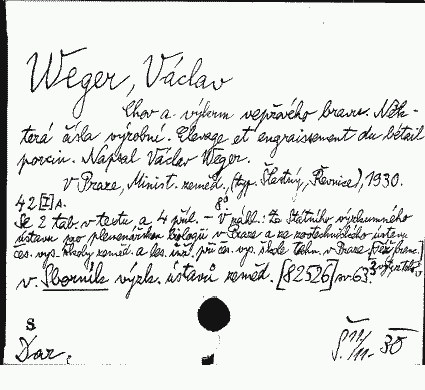 Weger, Václav
Chov a výkrm vepřového bravu. Něk-
terá čísla výrobní. Élevage et engraissement du bétail
porcin. Napsal Václav Weger.
V Praze, Minist. zeměd., (typ. Šťastný, Řevnice), 1930.
42 [I] s. 8°
Se 2 tab. v textu a 4 příl. - V záhl.: Ze Státního výzkumného
ústavu pro plemenářskou biologii v Praze a ze zootechnického ústavu
čes. vys. školy zeměd. a les. inž. při čes. vys. škole techn. v Praze
v. Sborník výzk. ústavů zeměd. [82526] sv. 63.
8
Dar.